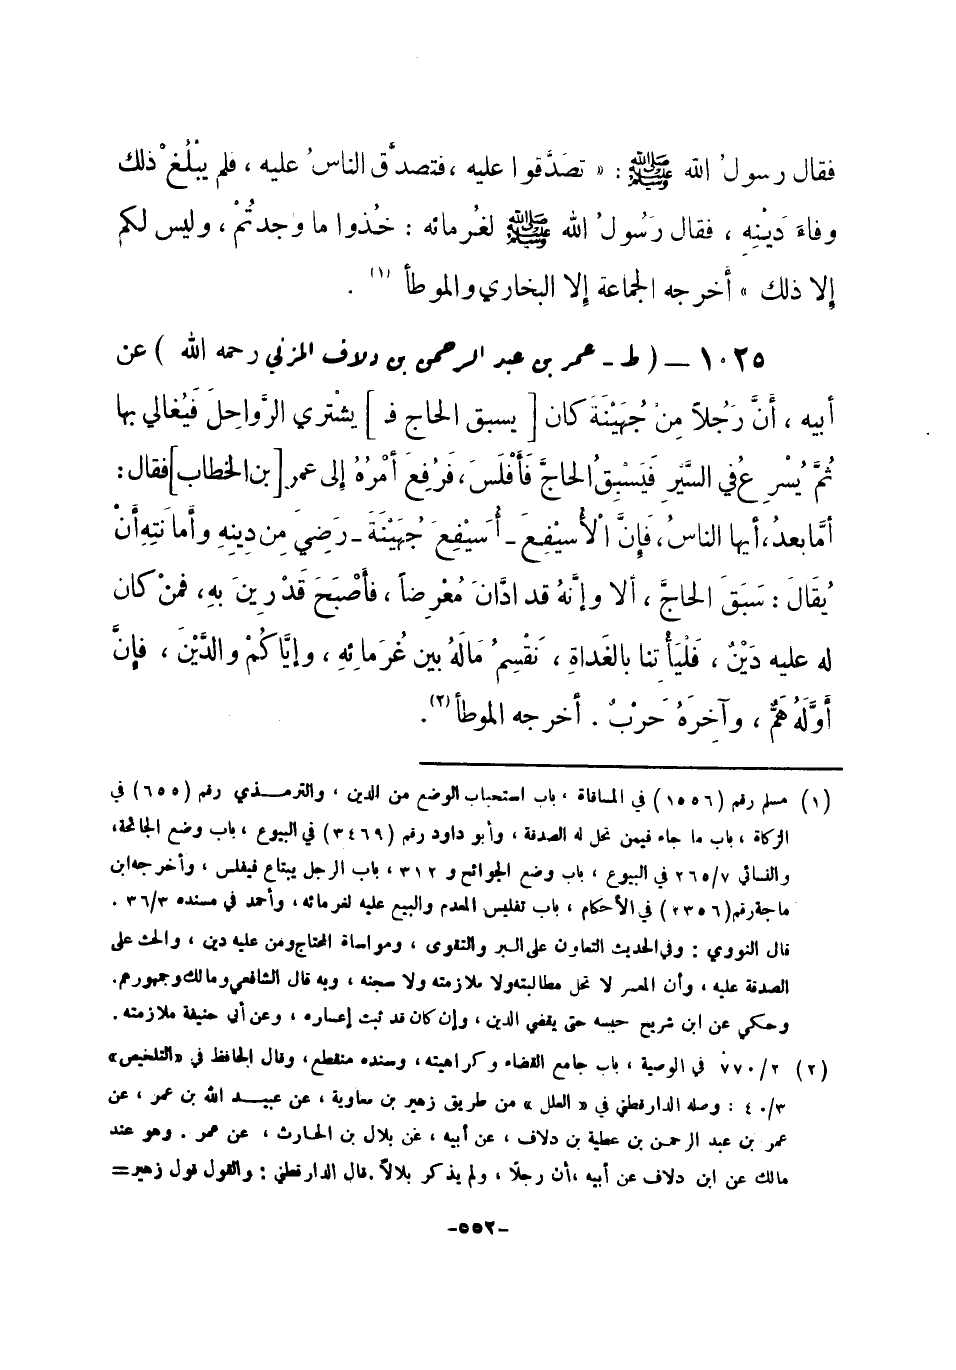 فقال رسولُ الله ﷺ : « تصَدَّقوا عليه ، فتصدَّق الناسُ عليه ، فلم يبْلُغْ ذلك
وفاءَ دَيْنِهِ ، فقال رَسُولُ الله ﷺ لغُرمائه : خُذوا ما وجدتُمْ ، وليس لكم
إلا ذلك » أخرجه الجماعة إلا البخاري والموطأ (١) .
١٠٢٥ ــ ( ط ـ عمر بن عبد الرحمن بن دلاف المزني رحمه الله ) عن
أبيه ، أَنَّ رَجُلاً مِنْ جُهَيْنَةَ كان [ يسبق الحاج فـ ] يشْتري الرَّواحِلَ فَيُغالي بها
ثُمَّ يُسْرِعُ في السَّيْرِ فَيَسْبِقُ الحاجَّ فَأَفْلَسَ ، فَرُفِعَ أَمْرُهُ إلى عمر [بن الخطاب] فقال :
أمَّا بعدُ ، أيها الناسُ ، فَإِنَّ الْأُسَيْفِعَ ـ أُسَيْفِعَ جُهَيْنَةَ ـ رَضِيَ مِن دِينِهِ وأمانَتِهِ أَنْ
يُقَالَ : سَبَقَ الحاجَّ ، ألا وإنَّهُ قد ادَّانَ مُعْرِضاً ، فأَصْبَحَ قَدْ رِينَ بهِ ، فمنْ كان
له عليه دَيْنٌ ، فَلْيَأْتِنا بالغَداةِ ، نَقْسِمُ مَالَهُ بين غُرَمائِهِ ، وإيَّاكُمْ والدَّيْنَ ، فإنَّ
أوَّلَهُ هَمٌّ ، وآخِرَهُ حَرْبٌ . أخرجه الموطأ (٢) .
(١) مسلم رقم (١٥٥٦) في المساقاة ، باب استحباب الوضع من الدين ، والترمـذي رقم (٦٥٥) في
الزكاة ، باب ما جاء فيمن تحل له الصدقة ، وأبو داود رقم (٣٤٦٩) في البيوع ، باب وضع الجائحة،
والنسائي ٢٦٥/٧ في البيوع ، باب وضع الجوائح و ٣١٢ ، باب الرجل يبتاع فيفلس ، وأخرجه ابن
ماجة رقم (٢٣٥٦) في الأحكام ، باب تفليس المعدم والبيع عليه لغرمائه ، وأحمد في مسنده ٣٦/٣ .
قال النووي : وفي الحديث التعاون على البر والتقوى ، ومواساة المحتاج ومن عليه دين ، والحث على
الصدقة عليه ، وأن المعسر لا تحل مطالبته ولا ملازمته ولا سجنه ، وبه قال الشافعي ومالك وجمهورهم.
وحكي عن ابن شريح حبسه حتى يقضي الدين ، وإن كان قد ثبت إعساره ، وعن أبي حنيفة ملازمته .
(٢) ٧٧٠/٢ في الوصية ، باب جامع القضاء وكراهيته ، وسنده منقطع ، وقال الحافظ في «التلخيص»
٤٠/٣ : وصله الدارقطني في « العلل » من طريق زهير بن معاوية ، عن عبيـد الله بن عمر ، عن
عمر بن عبد الرحمن بن عطية بن دلاف ، عن أبيه ، عن بلال بن الحارث ، عن عمر . وهو عند
مالك عن ابن دلاف عن أبيه ، أن رجلًا ، ولم يذكر بلالًا . قال الدارقطني : والقول قول زهير=
-٥٥٢-